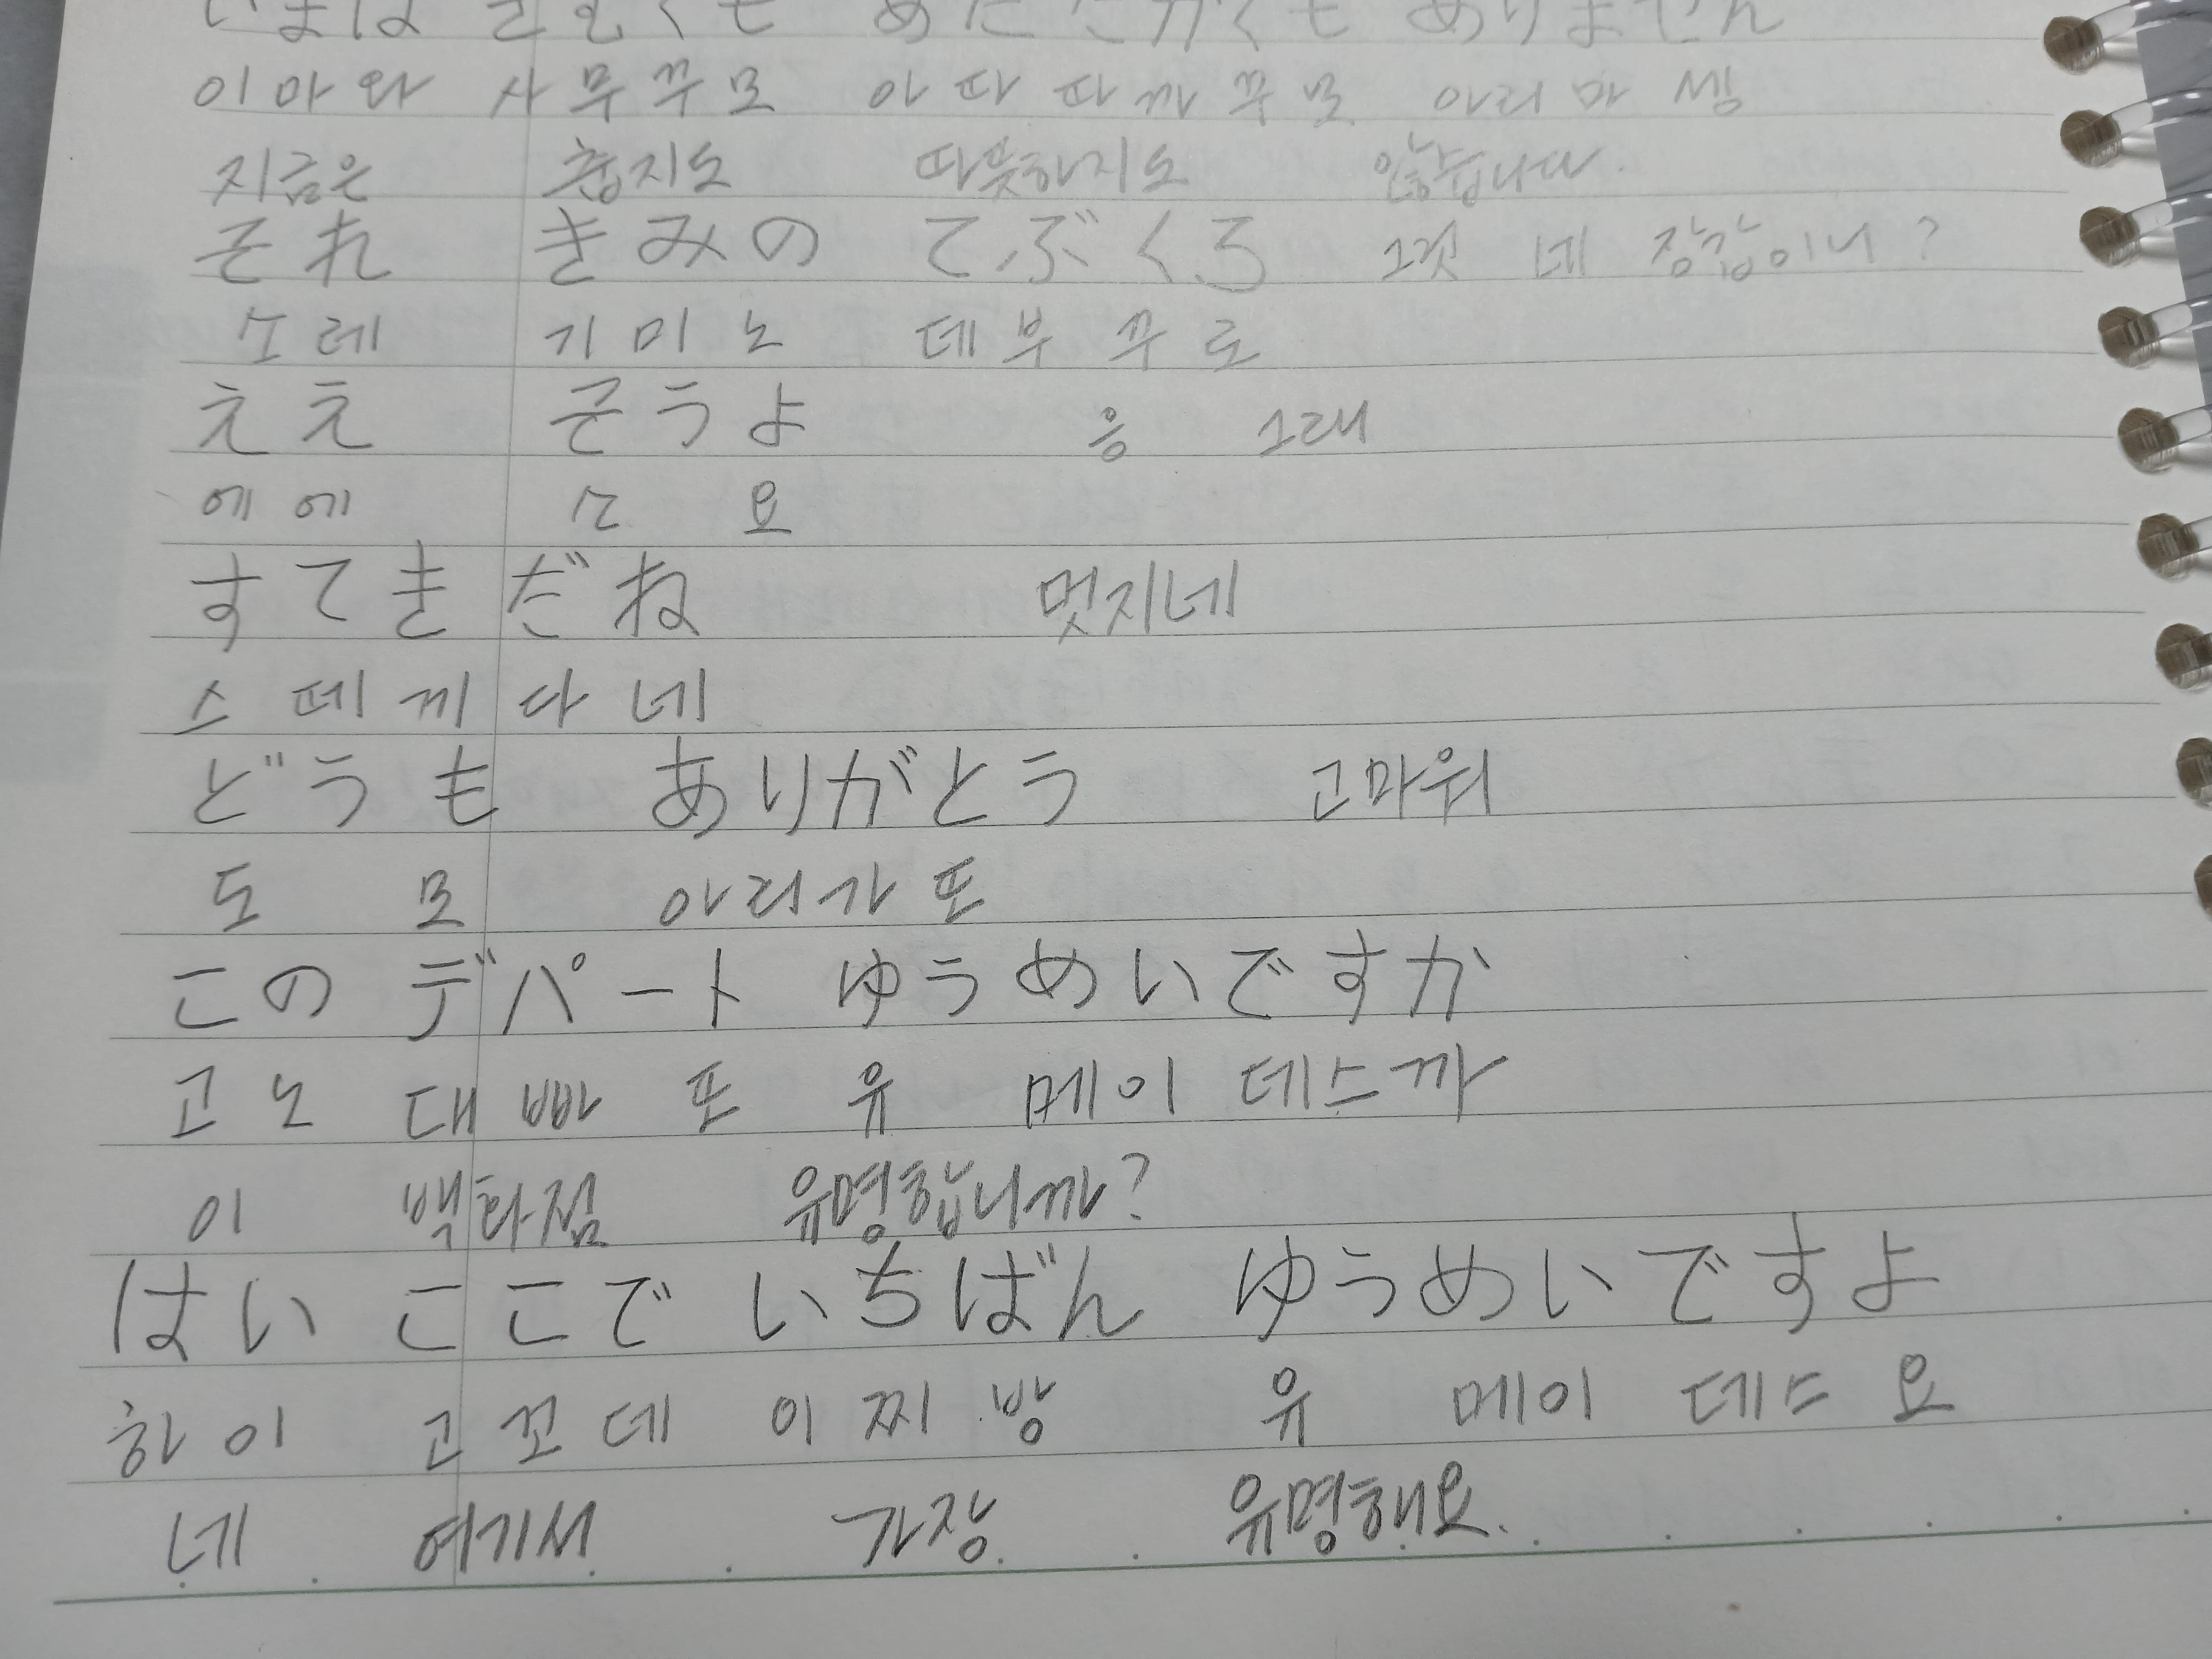 いまは さむくも あたたかくも ありません
이마와 사무꾸모 아따따까꾸모 아리마셍
지금은 춥지도 따뜻하지도 않습니다.
それ きみの てぶくろ 그것 네 장갑이니?
소레 기미노 데부꾸로
ええ そうよ 응 그래
에에 소 요
すてきだね 멋지네
스떼끼다네
どうも ありがとう 고마워
도 모 아리가또
このデパート ゆうめいですか
고노 대빠또 유 메이 데스까
이 백화점 유명합니까?
はい ここで いちばん ゆうめいですよ
하이 고꼬데 이찌방 유 메이 데스요
네 여기서 가장 유명해요.